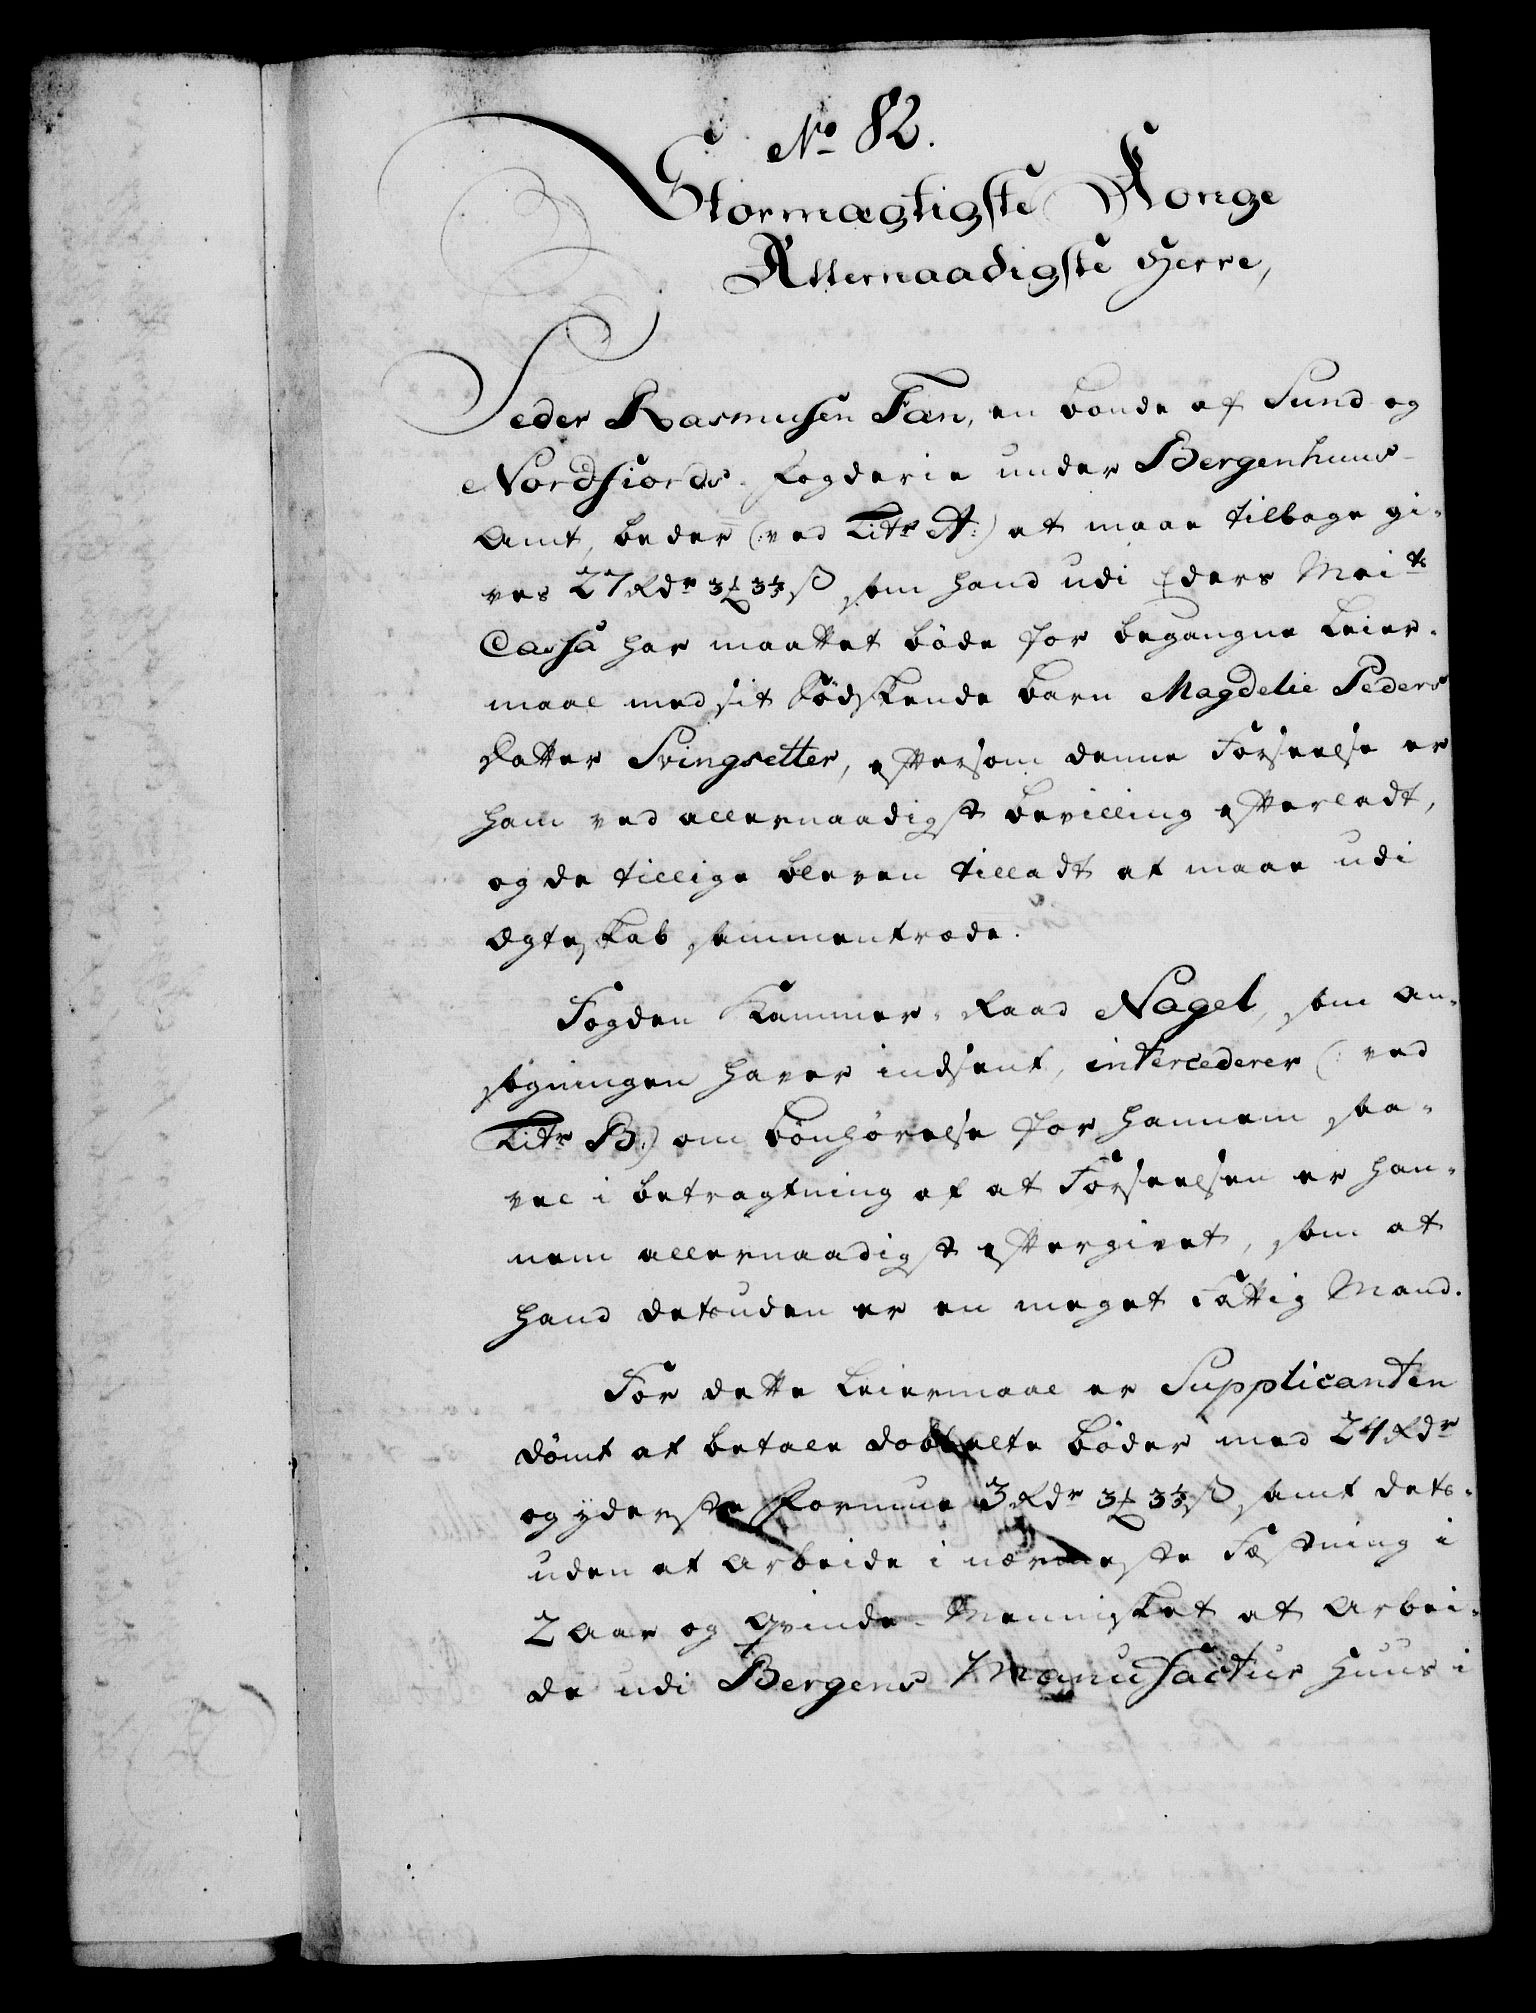 No 82.
Stormægtigste Konge
Allernaadigste Herre,
Peder Rasmusen Fæn, en bonde af Sund og
Nordfiords-Fogderie under Bergenhuus-
Amt, beder (: ved Litr A:) at maae tilbage gi-
ves 27 Rdr 3 ₰ 3⅓ ß som hand udi Eders Maits
Cassa har maattet bøde for begangne Leier-
maal med sit Sødskende barn Magdelie Peders
datter Svingsetter, eftersom denne Forseelse er
ham ved allernaadigst bevilling efterladt,
og de tillige bleven tilladt at maae udi
Ægteskab sammentræde.
Fogden Kammer-Raad Nagel, som an-
søgningen haver indsent, intercederer (: ved
Litr B:) om bønhørelse for hannem saa-
vel i betragtning af at Forseelsen er han-
nem allernaadigst eftergivet, som at
hand detsuden er en meget fattig Mand.
For dette Leiermaal er Supplicanten
dømt at betale dobbelte bøder med 24 Rdr
og yderste Formue 3 Rdr 3 ₰ 3⅓ ß samt dets-
uden at arbeide i nærmeste Fæstning i
2 aar og qvinde-Mennisket at arbei-
de udi Bergens Manufactur Huus i